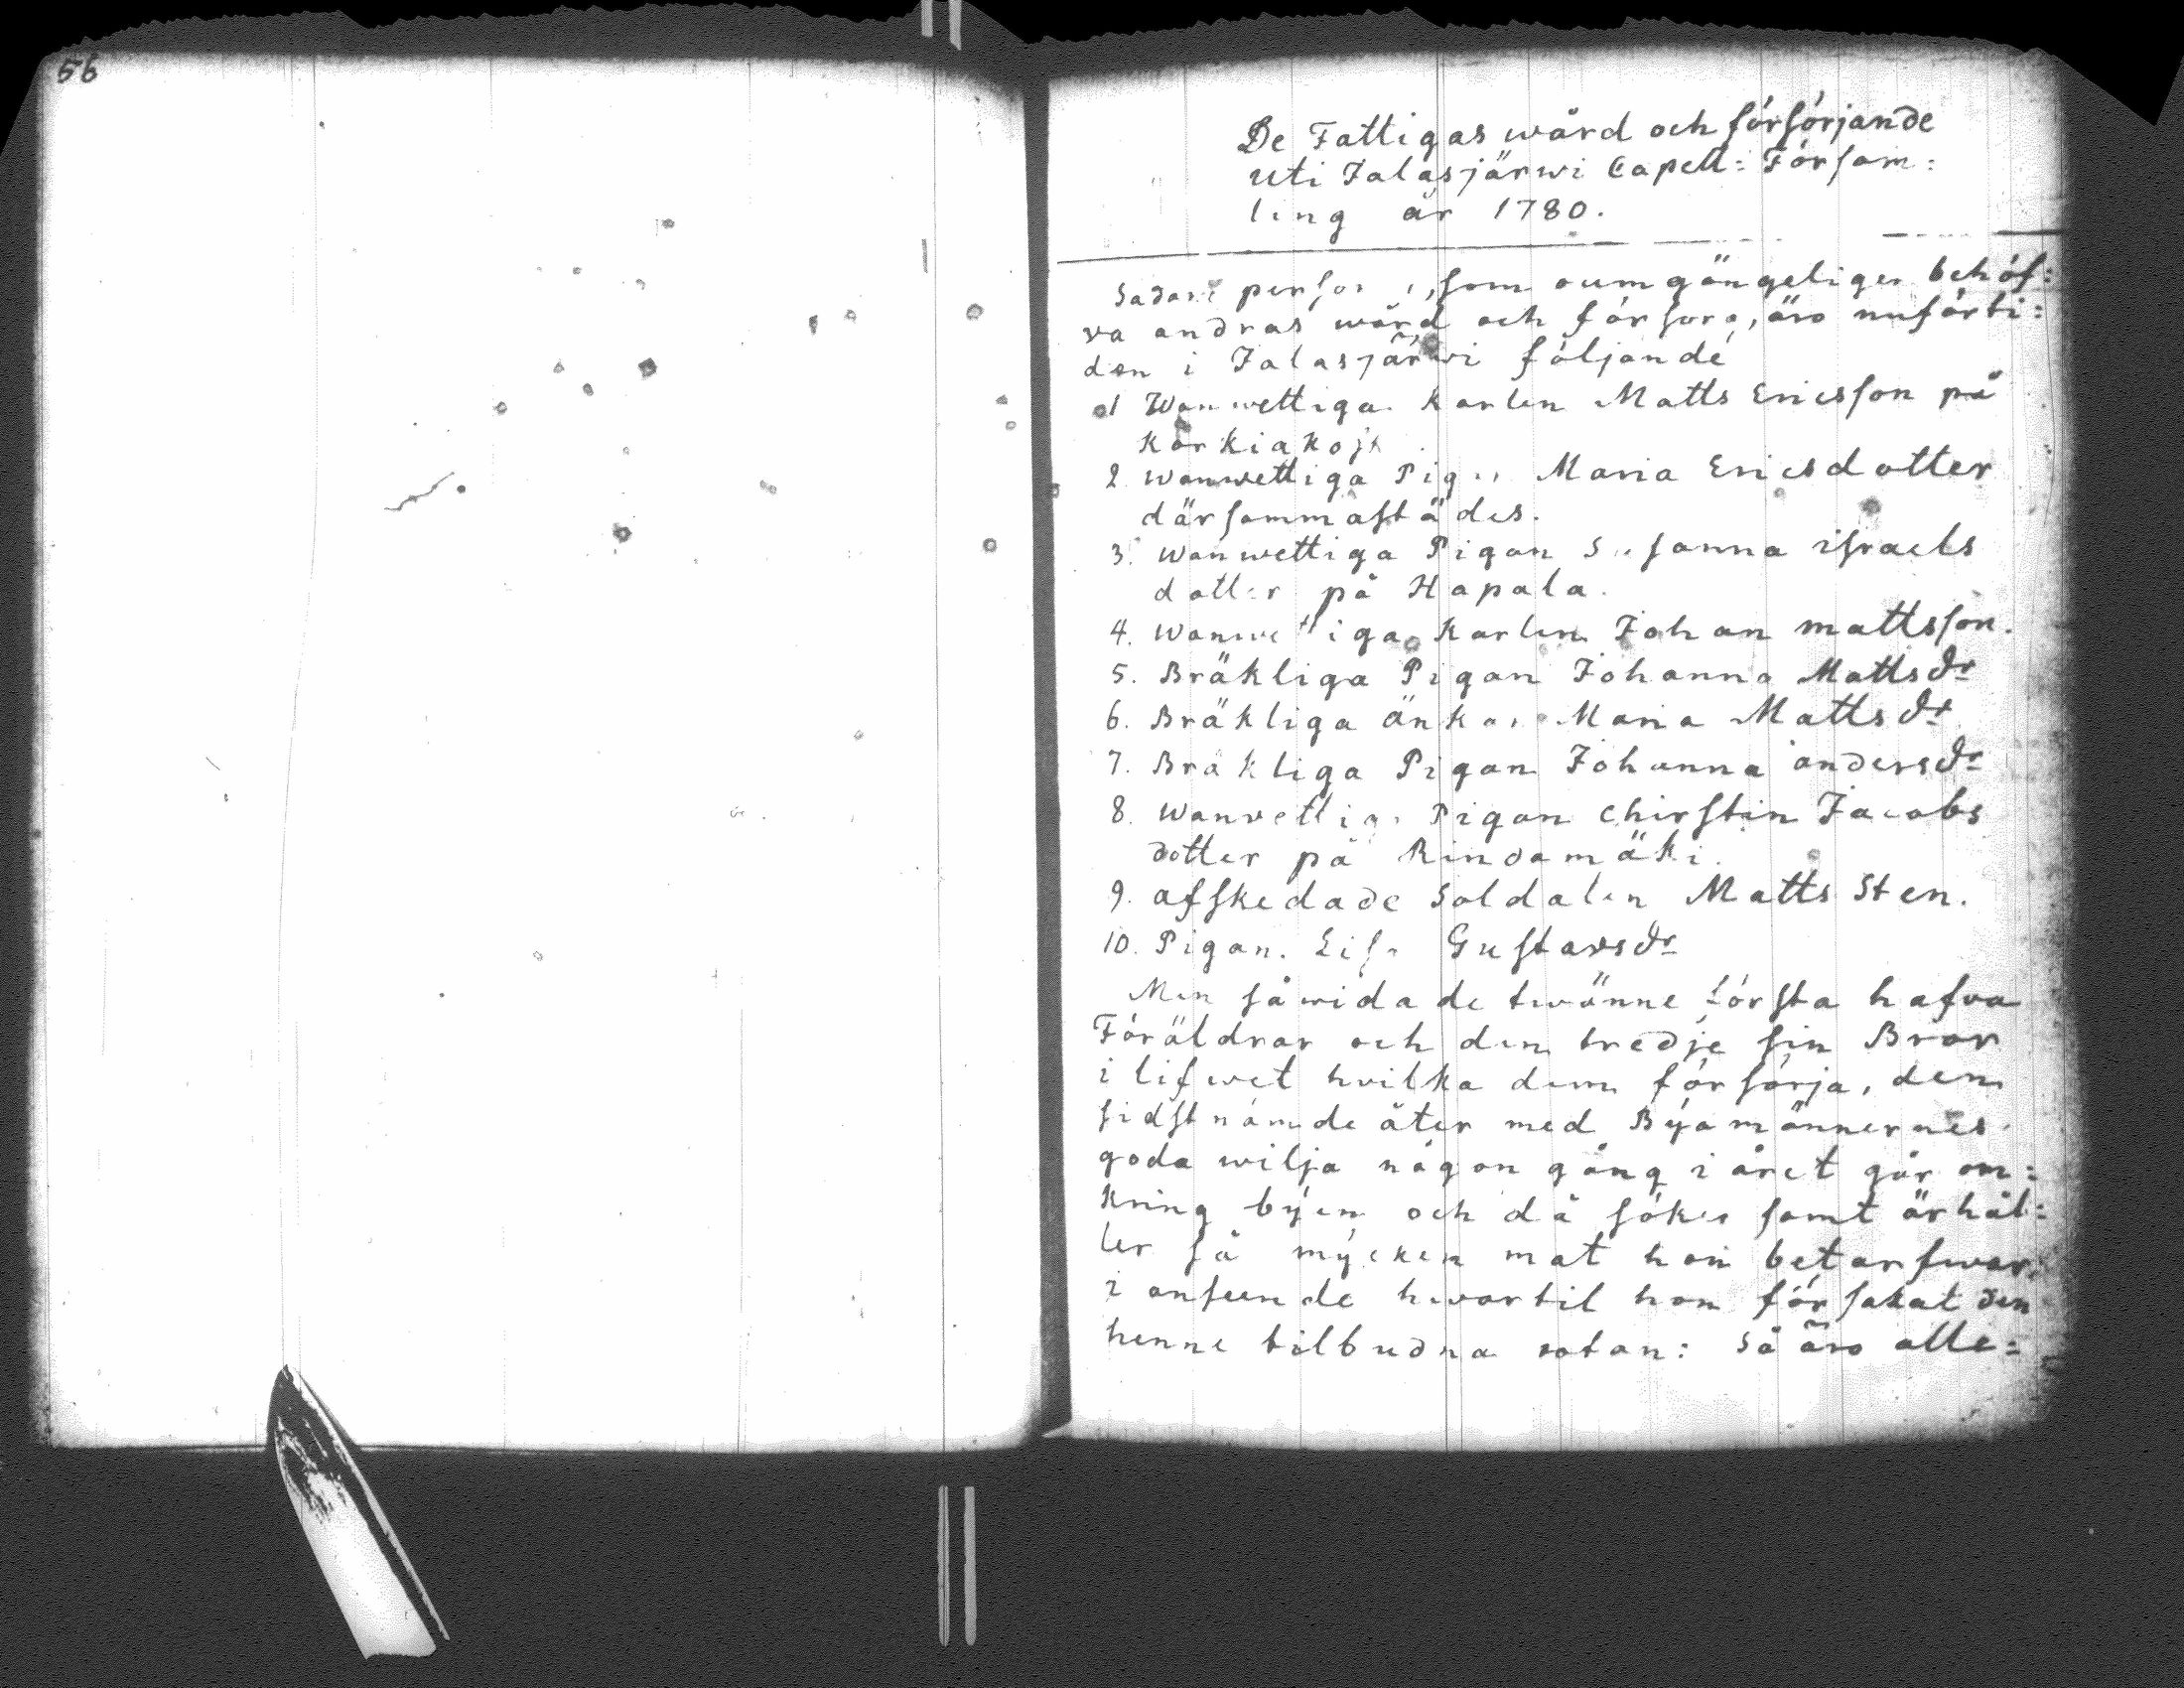 56
De Fattigas wård och försörjande
uti Jalasjärwi Capell: Församl:
ling år 1780.
Sådane som oumgängeligen behöf:
va andras wård och försorg, äro nuförti:
den i Jalasjärwi följande
1 Wanwettiga Karlen Matts Ericsson på
Korkiakoski
2 wanwettiga Pigan Maria Ericsdotter
därsammastädes.
3. wanwettiga Pigan Susanna israels
dotter på Hapala.
4. wanwettiga Karlen Johan mattsson.
5. Bräkliga Pigan Johanna Mattsdr
6. Bräkliga änkan Maria Mattsdr
7. Bräkliga Pigan Johanna andersdr
8. wanvettiga Pigan Chirstin Jacobs
dotter på Rindamäki.
9. afskedade Soldaten Matts Sten.
10. Pigan. Lisa Gustavsdr
Men såwida de twänne första hafva
Föräldrar och den tredje sin Bror
i lifwet hvilka dem försörja, den
sidstnämde åter med Byamännernes
goda wilja någon gång i året går om:
kring byen och då sökes samt ärhål:
ler så mycken mat hon betarfwar,
i anseende hwartil hon försakat den
henne tilbudna rotan: så äro alle: